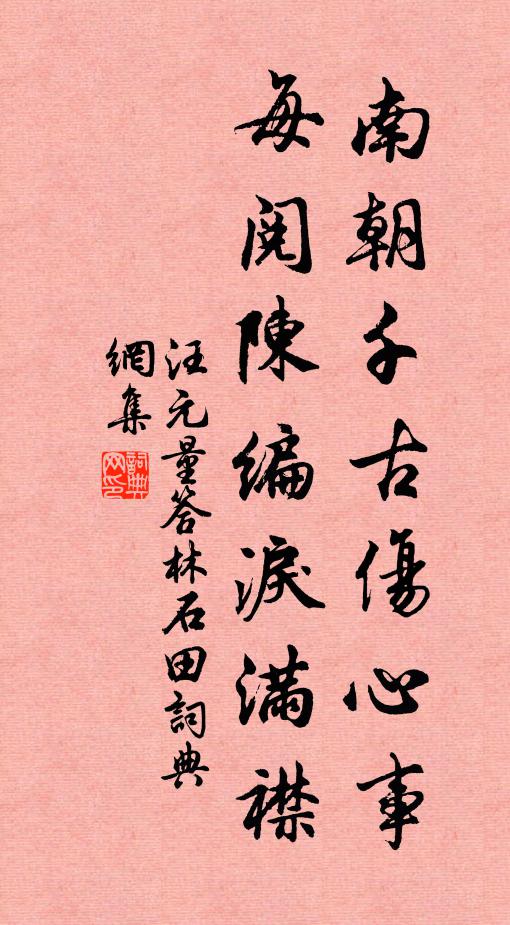 南朝千古傷心事
每閱陳編淚滿襟
汪元量答林石田詞典
網集
詞典網印